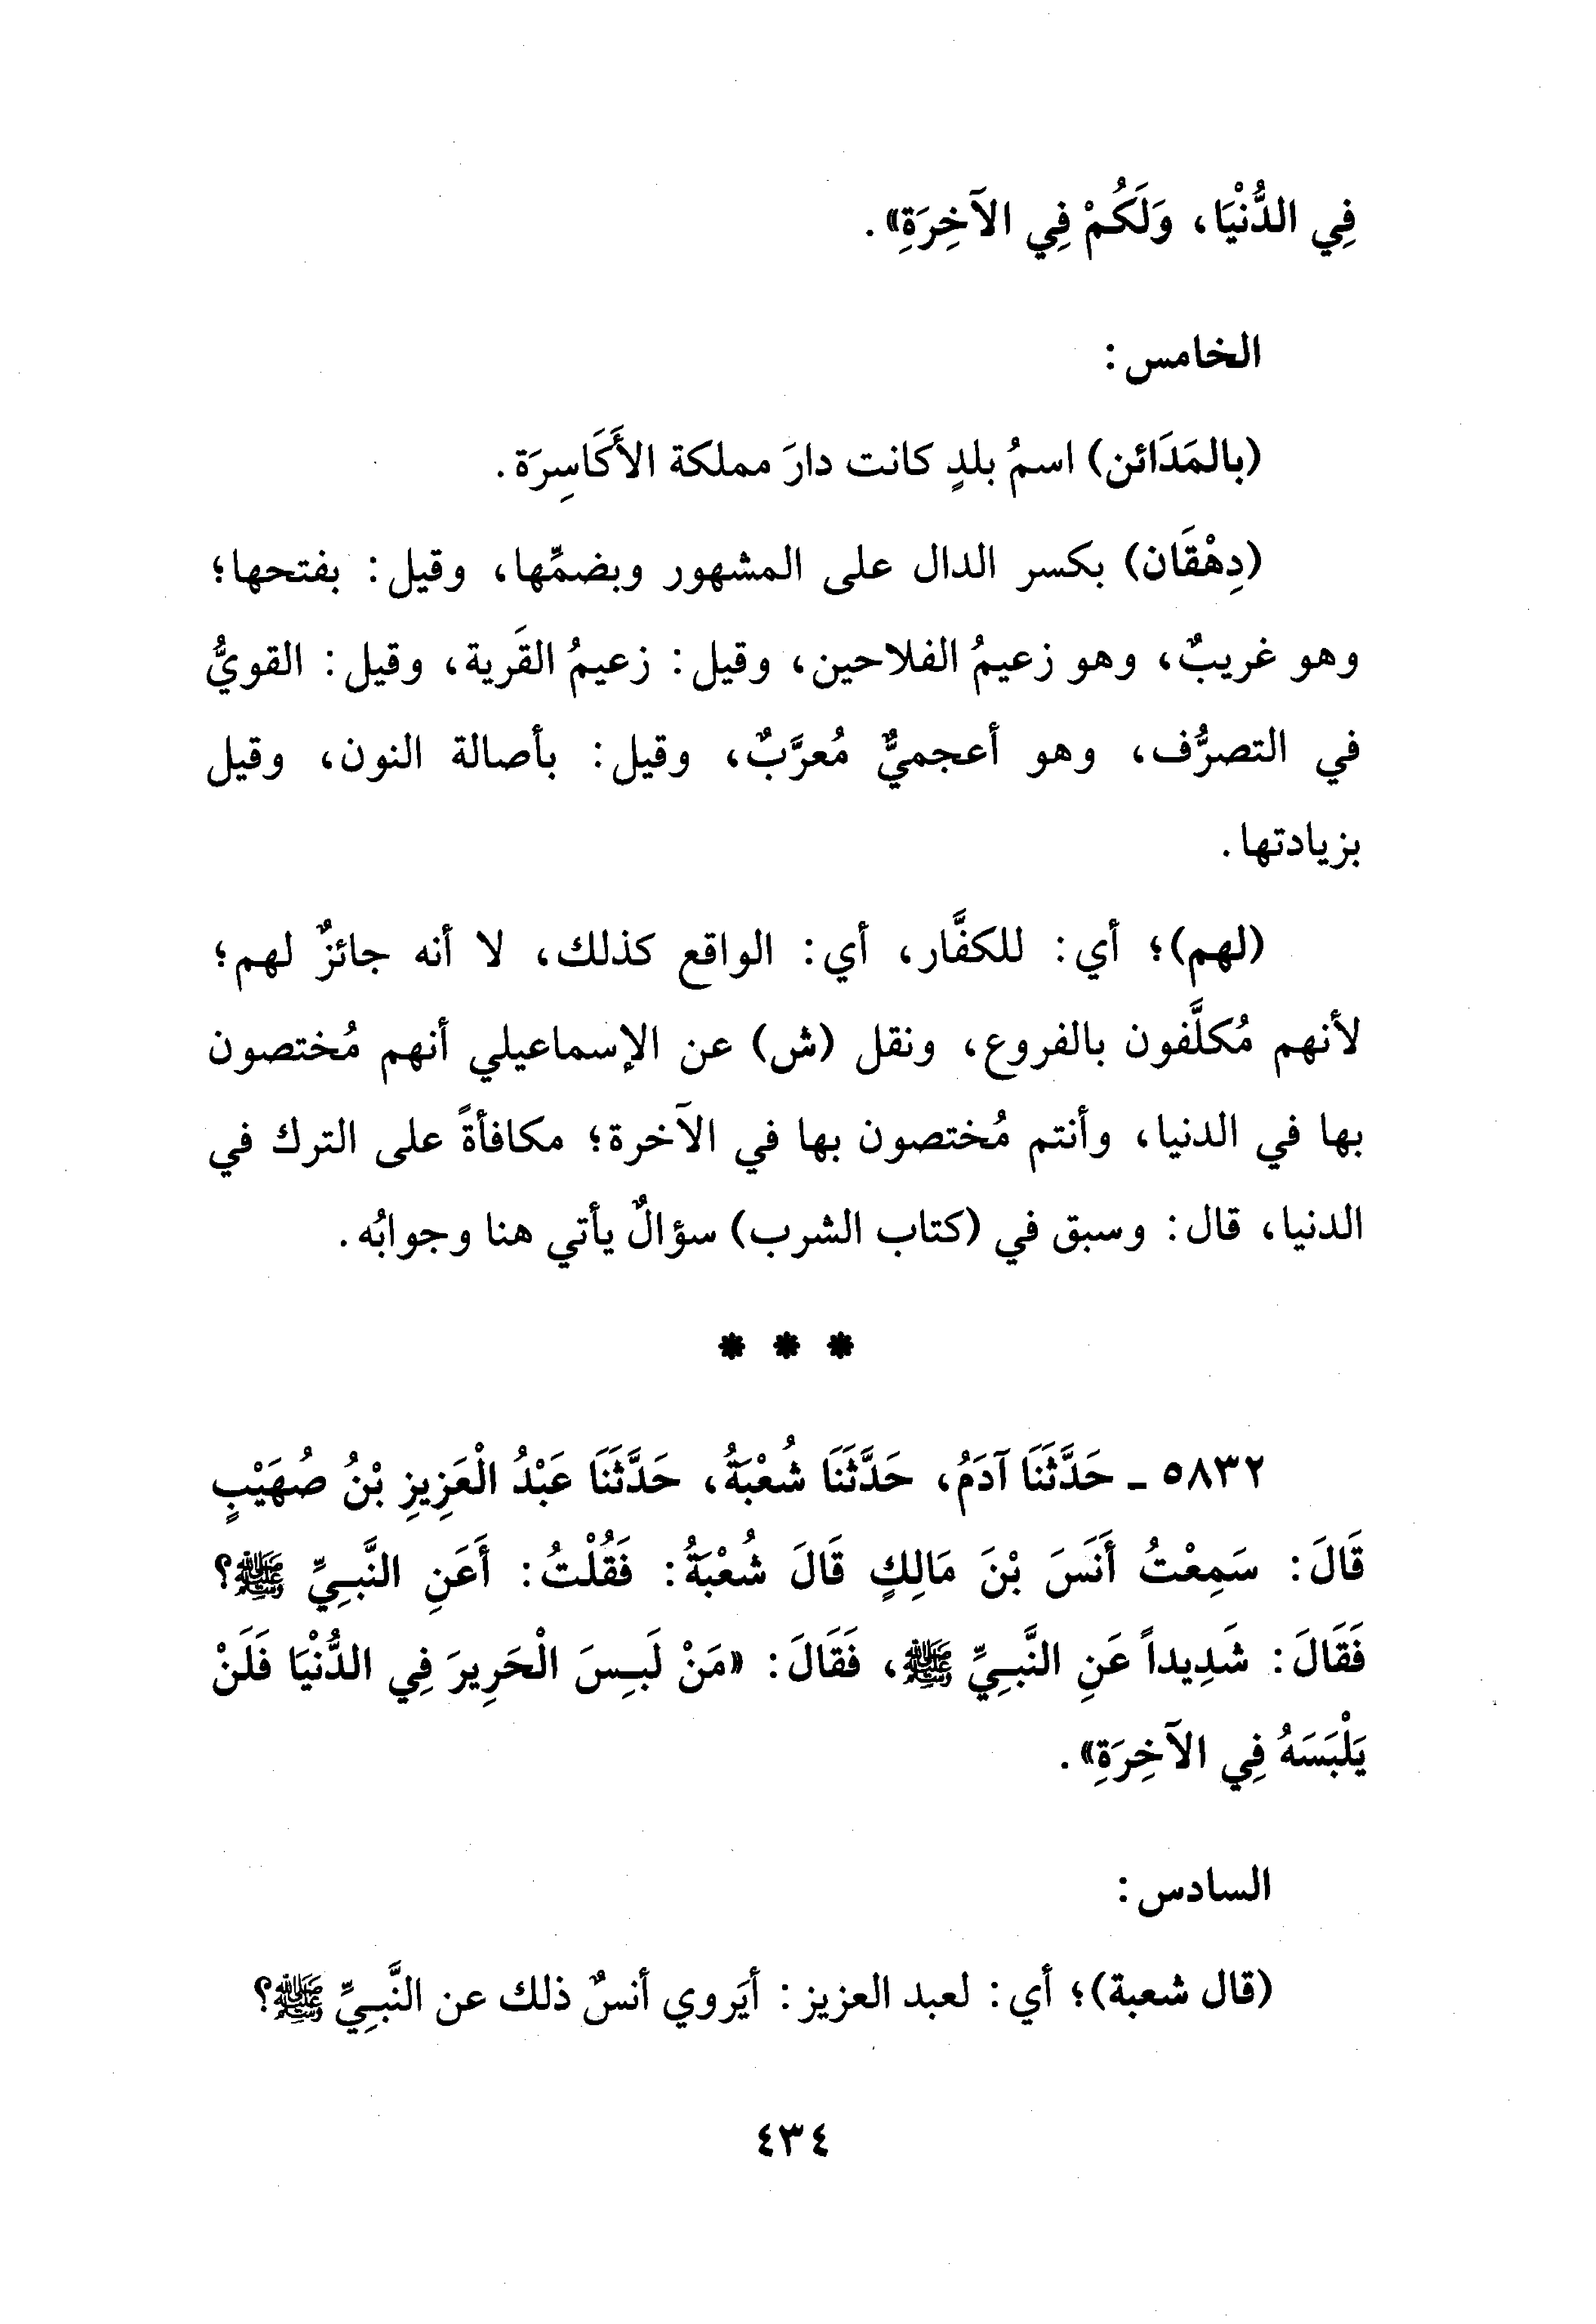 فِي الدُّنْيَا، وَلَكُمْ فِي الآخِرَةِ».
الخامس:
(بالمَدَائن) اسمُ بلدٍ كانت دارَ مملكة الأَكَاسِرَة.
(دِهْقَان) بكسر الدال على المشهور وبضمِّها، وقيل: بفتحها؛
وهو غريبٌ، وهو زعيمُ الفلاحين، وقيل: زعيمُ القَرية، وقيل: القويُّ
في التصرُّف، وهو أعجميٌّ مُعرَّبٌ، وقيل: بأصالة النون، وقيل
بزيادتها.
(لهم)؛ أي: للكفَّار، أي: الواقع كذلك، لا أنه جائزٌ لهم؛
لأنهم مُكلَّفون بالفروع، ونقل (ش) عن الإسماعيلي أنهم مُختصون
بها في الدنيا، وأنتم مُختصون بها في الآخرة؛ مكافأةً على الترك في
الدنيا، قال: وسبق في (كتاب الشرب) سؤالٌ يأتي هنا وجوابُه.
* * *
٥٨٣٢ - حَدَّثَنَا آدَمُ، حَدَّثَنَا شُعْبَةُ، حَدَّثَنَا عَبْدُ الْعَزِيزِ بْنُ صُهَيْبٍ
قَالَ: سَمِعْتُ أَنَسَ بْنَ مَالِكٍ قَالَ شُعْبَةُ: فَقُلْتُ: أَعَنِ النَّبِيِّ ﷺ؟
فَقَالَ: شَدِيداً عَنِ النَّبِيِّ ﷺ، فَقَالَ: «مَنْ لَبِسَ الْحَرِيرَ فِي الدُّنْيَا فَلَنْ
يَلْبَسَهُ فِي الآخِرَةِ».
السادس:
(قال شعبة)؛ أي: لعبد العزيز: أيَروي أنسٌ ذلك عن النَّبِيِّ ﷺ؟
٤٣٤